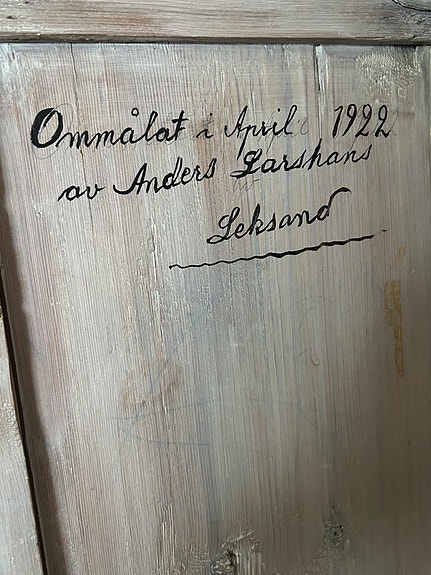 Ommålat i April 1922
av Anders Larshans
Leksand